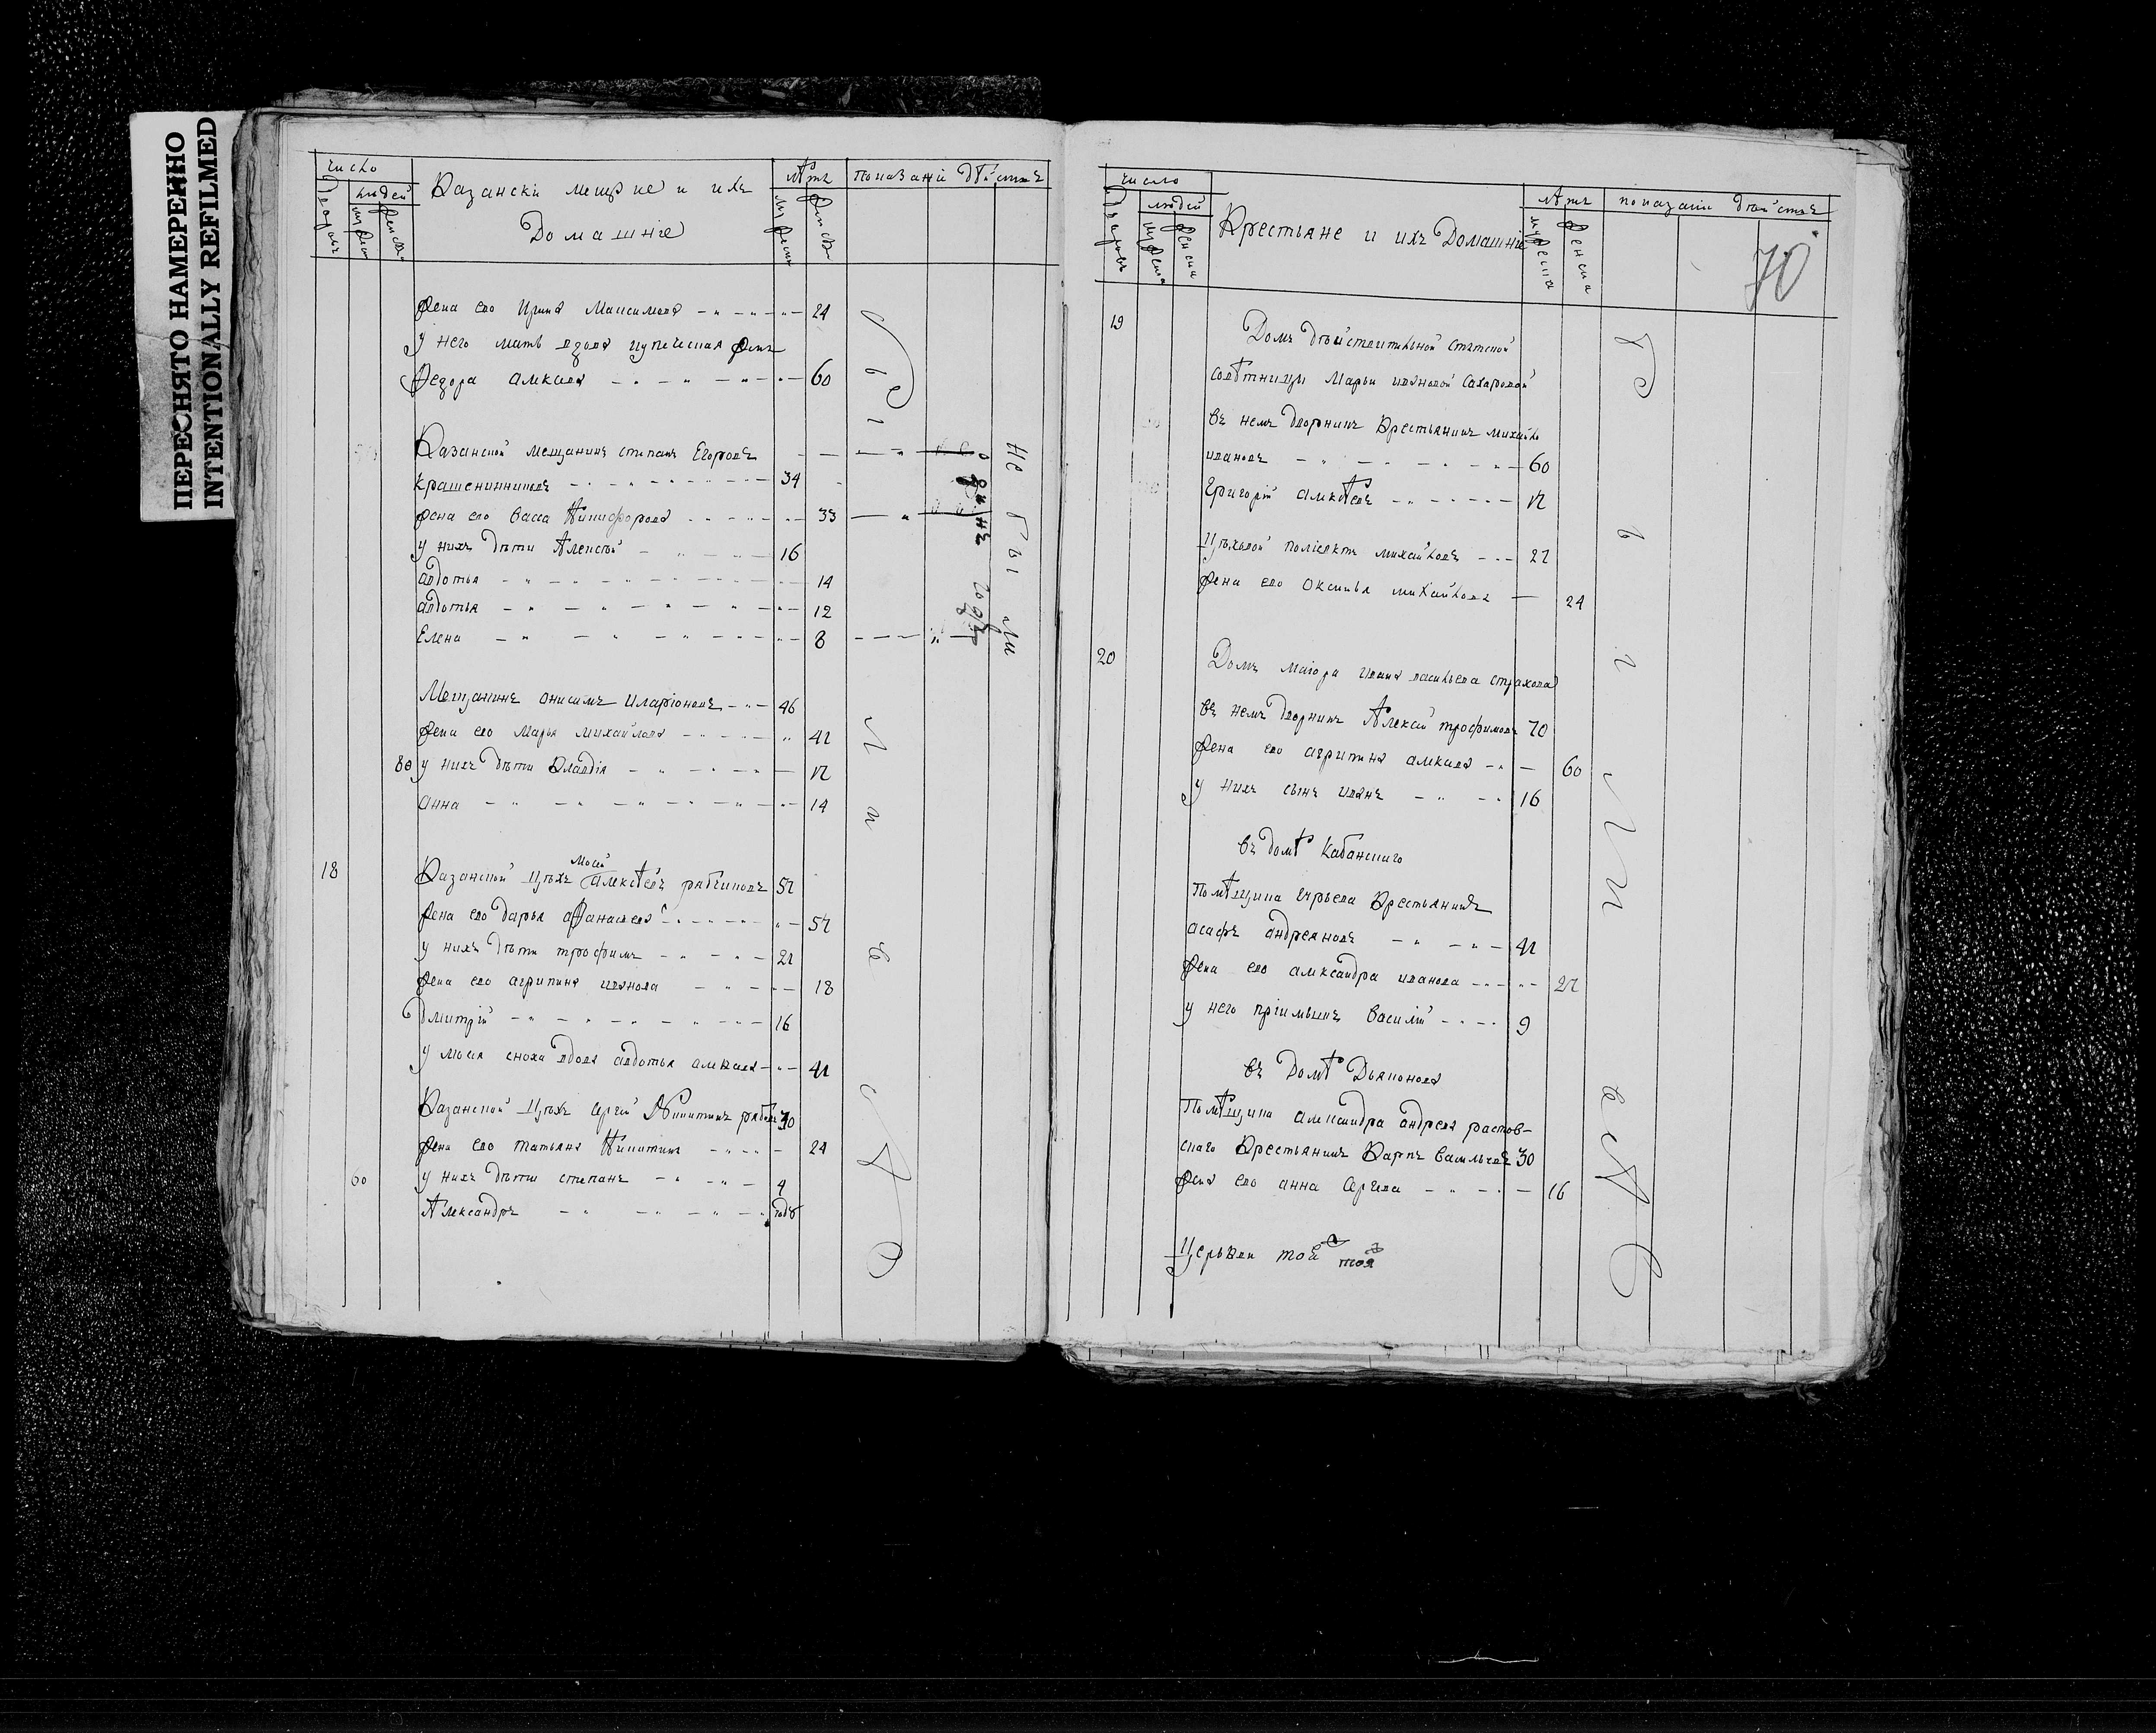 ПЕРЕСНЯТО НАМЕРЕННО
INTENTIONALLY REFILMED
число
людей
Казански мещане и ихъ
Домашнїе
лѣтъ
показанїи дѣйства
жена ево Ирина Максимова 24
у него мать вдова купеческая жена
Федора алексева 60
Казанской мещанинъ степанъ Егоровъ
крашениниковъ 34
жена ево васса Никифорова 33
у нихъ дѣти Алексѣй 16
авдотья 14
авдотья 12
Елена 8
Мещанинъ онисимъ иларїоновъ 46
жена ево марья михайлова 42
80 у нихъ дѣти Клавдїя 12
анна 14
моей
18 Казанской цѣхъ алексѣевъ рябчиковъ 52
жена ево дарья афанасева 52
у нихъ дѣти трофимъ 22
жена ево агрипина иванова 18
дмитрїй 16
у мосея сноха вдова авдотья алексева 42
Казанской цѣхъ сергѣй Никитинъ 30
жена ево татьяна Никитина 24
60 у нихъ дѣти степанъ 4
Александръ годъ
были
не были
о
динъ
годъ
у
исповеди
число
людей
Крестьяне и ихъ Домашнїе
лѣтъ
показанїи дѣйства
70
19 Домъ дѣйствительной статской
совѣтницы Марьи ивановой сахаровой
въ немъ дворникъ Крестьянинъ михайло
ивановъ 60
григорїй алексѣевъ 12
цѣховой полїектъ михайловъ 22
жена ево оксинья михайлова 24
20 Домъ маїора ивана васильева страхова
въ немъ дворникъ Алексей трофимовъ 70
жена ево агрипина алексева 60
у нихъ сынъ иванъ 16
въ домѣ кабанскаго
Помѣщика юрьева Крестьянинъ
асафъ андреяновъ 42
жена ево александра иванова 22
у него прїимышъ василїй 9
въ домѣ Дьяконова
Помѣщика александра андрева растов-
скаго Крестьянинъ Карпъ васильевъ 30
жена ево анна сергева 16
были
Церькви той тоя